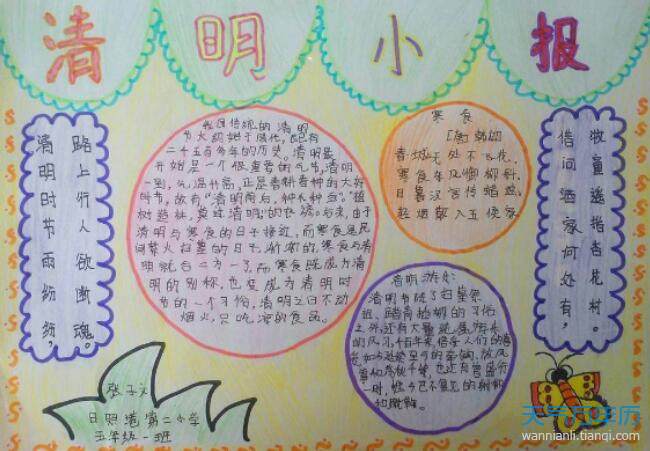 清明小报
清明时节雨纷纷，
路上行人欲断魂。
我国传统的清明
节大约始于周代，已有
二千五百多年的历史。清明最
开始是一个很重要的节气，清明
一到，气温升高，正是春耕春种的大好
时节，故有“清明前后，种瓜种豆”。“植
树造林，莫过清明”的农谚。后来，由于
清明与寒食的日子接近，而寒食是民
间禁火扫墓的日子，渐渐的，寒食与清
明就合二为一了，而寒食既成为清
明的别称，也变成为清明时
节的一个习俗，清明之日不动
烟火，只吃凉的食品。
寒食
［唐］韩翃
春城无处不飞花，
寒食东风御柳斜。
日暮汉宫传蜡烛，
轻烟散入五侯家。
借问酒家何处有，
牧童遥指杏花村。
清明
清明节除了扫墓祭
祖、踏青
之外，还有
的风习，千百年来，
一时，
张子
日照港第二小学
五年级一班
天气万年历
wannianli.tianqi.com